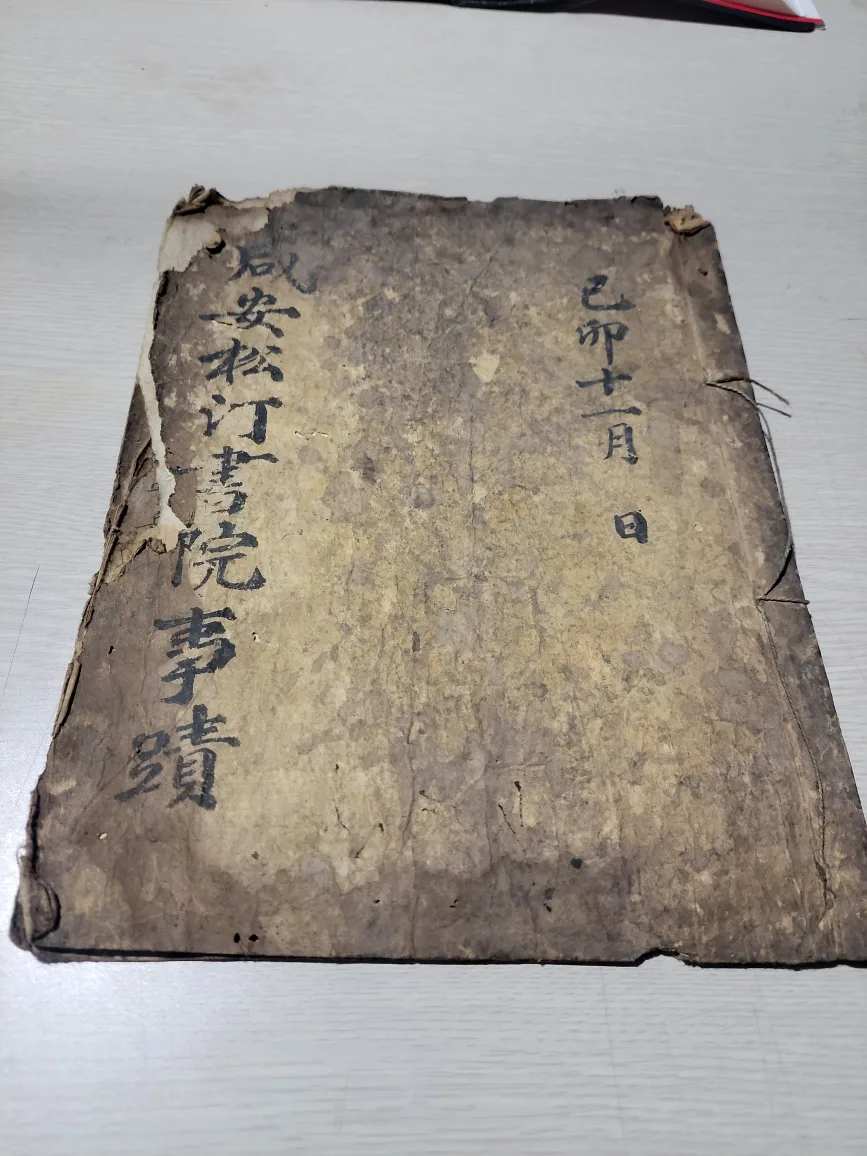 己卯十一月　日
咸安松汀書院事蹟